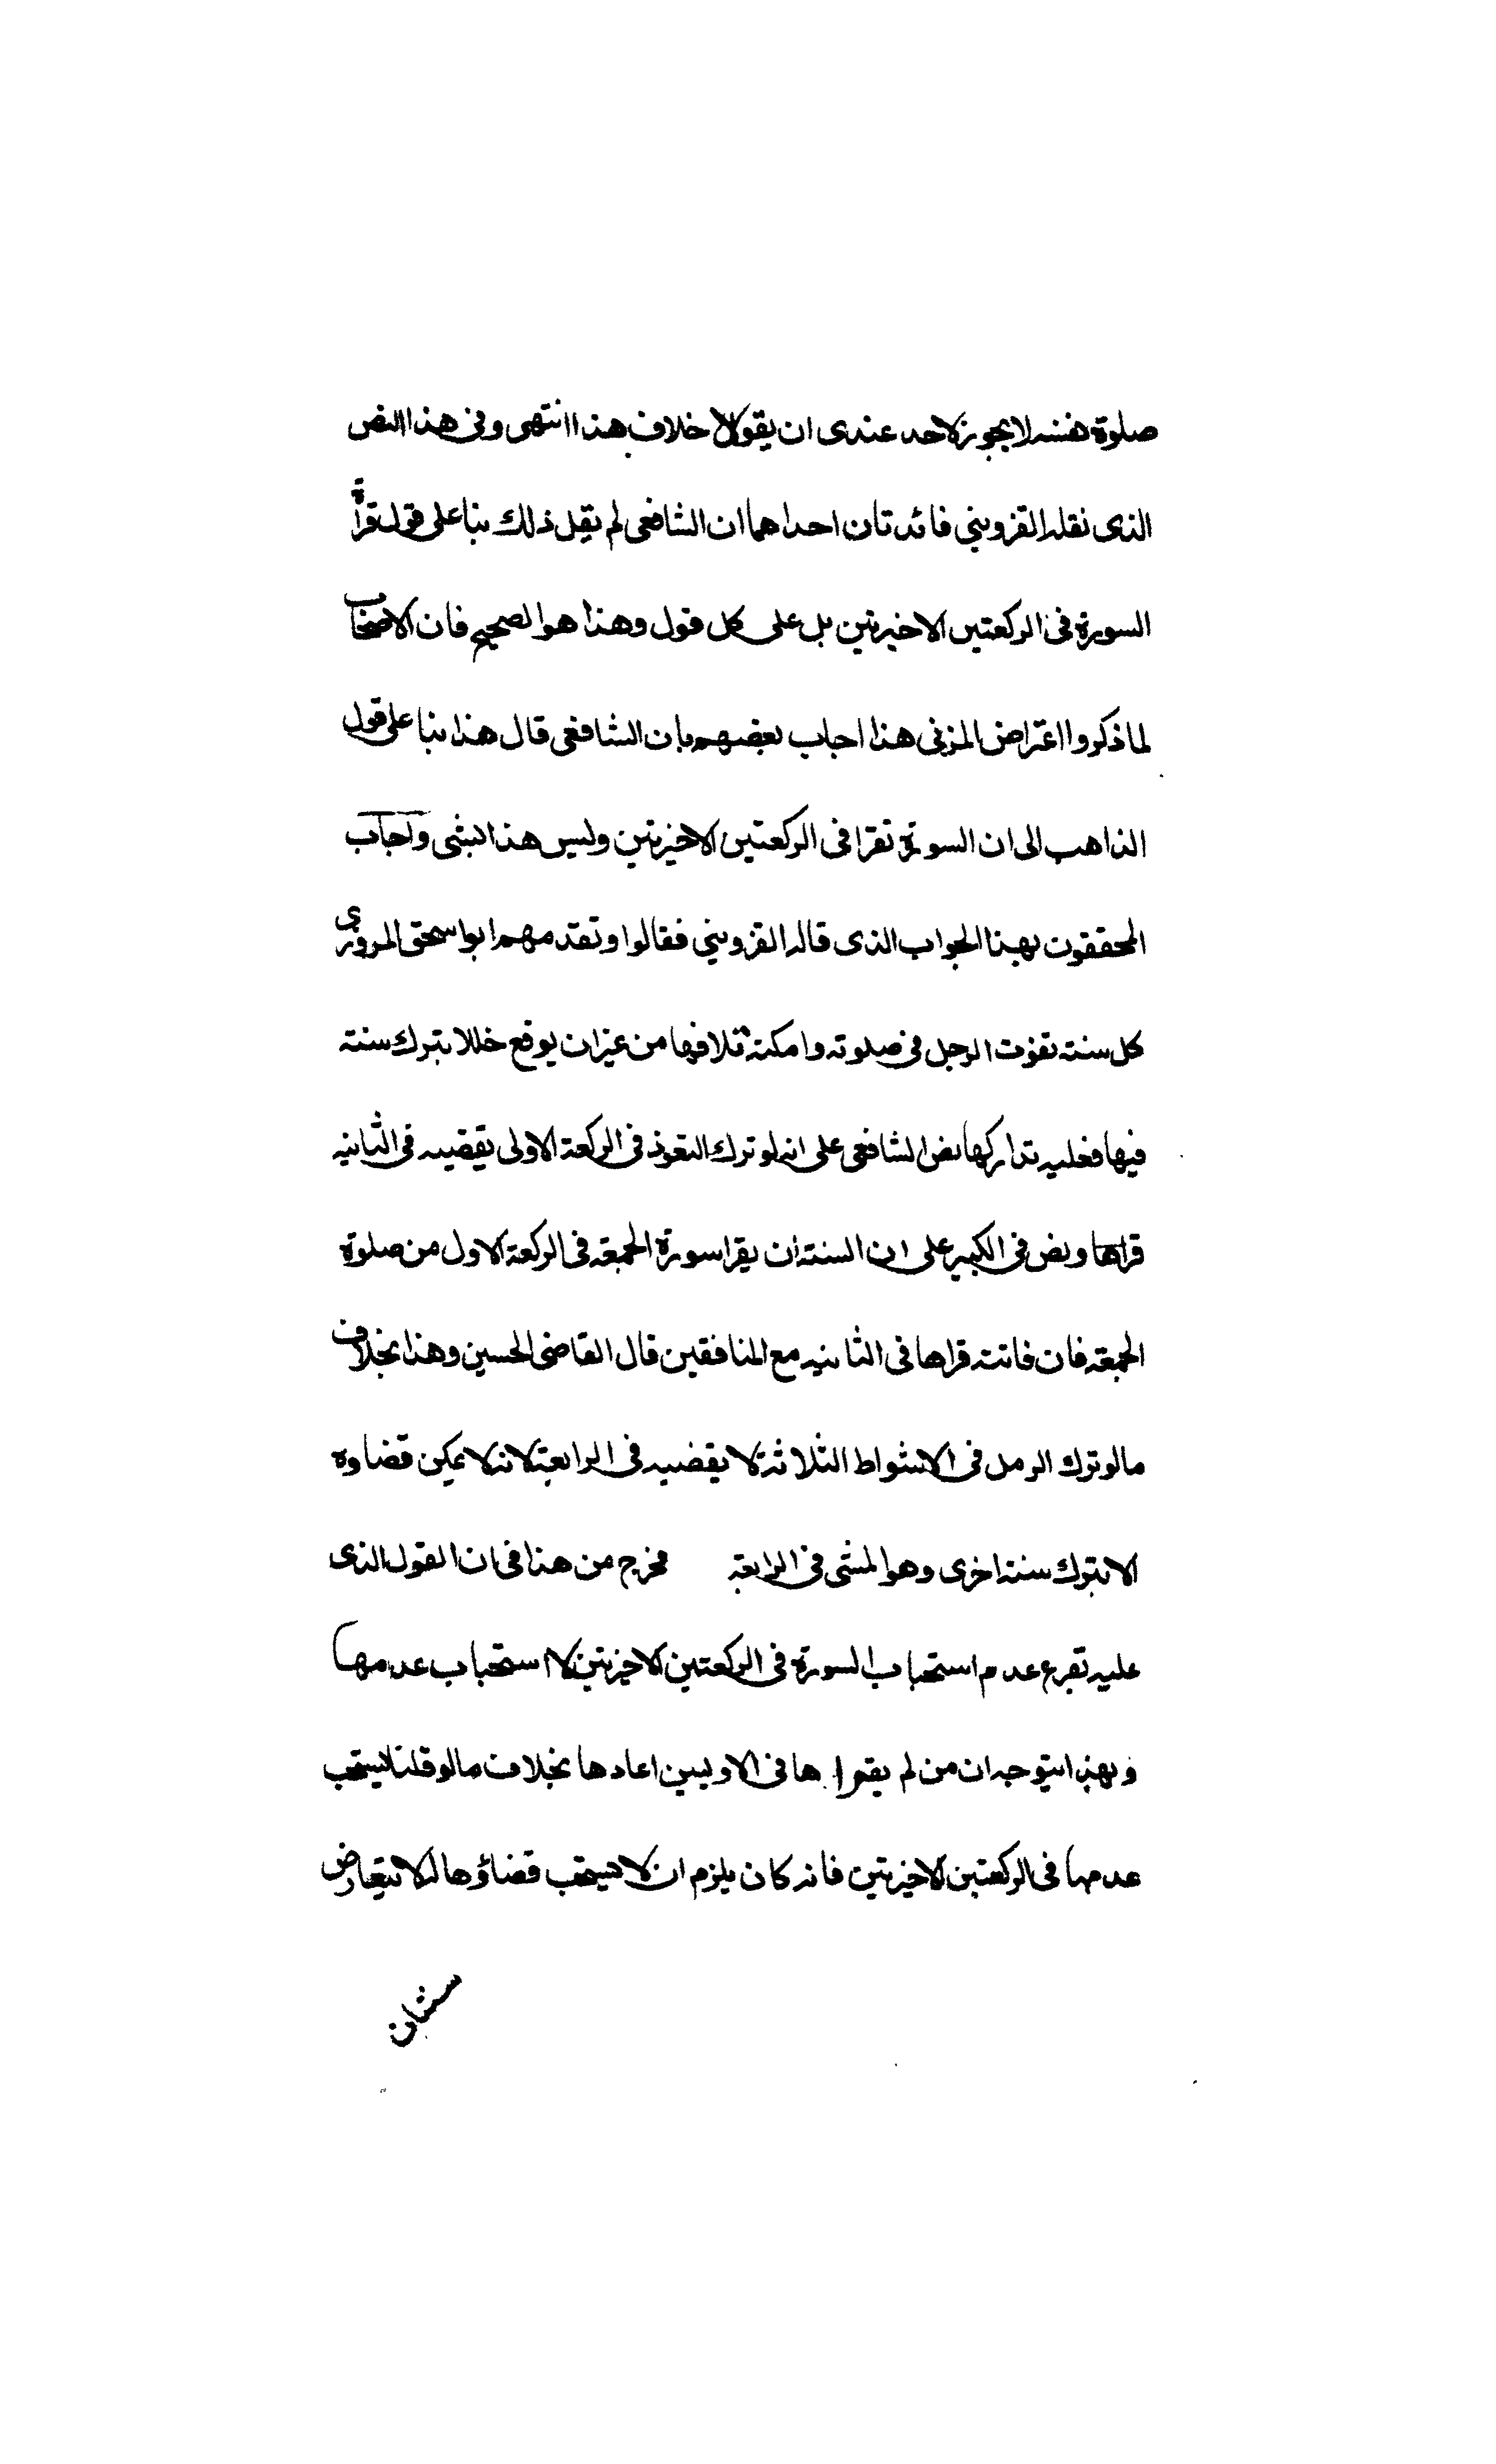 صلوة نفسه لا يجوز لاحد عندى ان يقول الا خلاف هذا انتهى وفى هذا النص
الذى نقله القزوينى فائدتان احداهما ان الشافعى لم يقل ذلك بنا على قول قرأة
السورة فى الركعتين الاخيرتين بل على كل قول وهذا هو الصحيح فان الاصحاب
لما ذكروا اعتراض المزنى هذا اجاب بعضهم بان الشافعى قال هذا بنا على قول
الذاهب الى ان السورة تقرا فى الركعتين الاخيرتين وليس هذا بشى واجاب
المحققون بهذا الجواب الذى قاله القزوينى فقالوا وتقدمهم ابو اسحق المروزى
كل سنته تفوت الرجل فى صلوته وامكنه تلافيها من غير ان يوقع خللا بترك سنته
فيها فعليه تداركها نص الشافعى على انه لو ترك التعوذ فى الركعة الاولى يقضيه فى الثانيه
قراها ونص فى الكبير على ان السنة ان يقرا سورة الجمعة فى الركعة الاول من صلوة
الجمعة فان فاتته قراها فى الثانيه مع المنافقين قال القاضى الحسين وهذا بخلاف
ما لو ترك الرمل فى الاشواط الثلاثة لا يقضيه فى الرابعة لانه لا يمكن قضاوه
الا بترك سنة اخرى وهو المشى فى الرابعة فخرج من هذا فى ان القول الذى
عليه تفرع عدم استحباب السورة فى الركعتين الاخيرتين لا استحباب عدمها
وبهذا يتوجه ان من لم يقراها فى الاوليين اعادها بخلاف ما لو قلنا يستحب
عدمها فى الركعتين الاخيرتين فانه كان يلزم ان لا يستحب قضاؤها لئلا يتعارض
سنتان